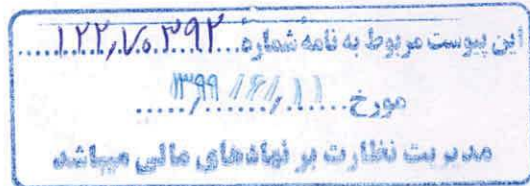 این پیوست مربوط به نامه شماره ۱۲۲/۷۵۳۹۲
مورخ ۱۳۹۹/۶/۱۱
مدیریت نظارت بر نهادهای مالی میباشد